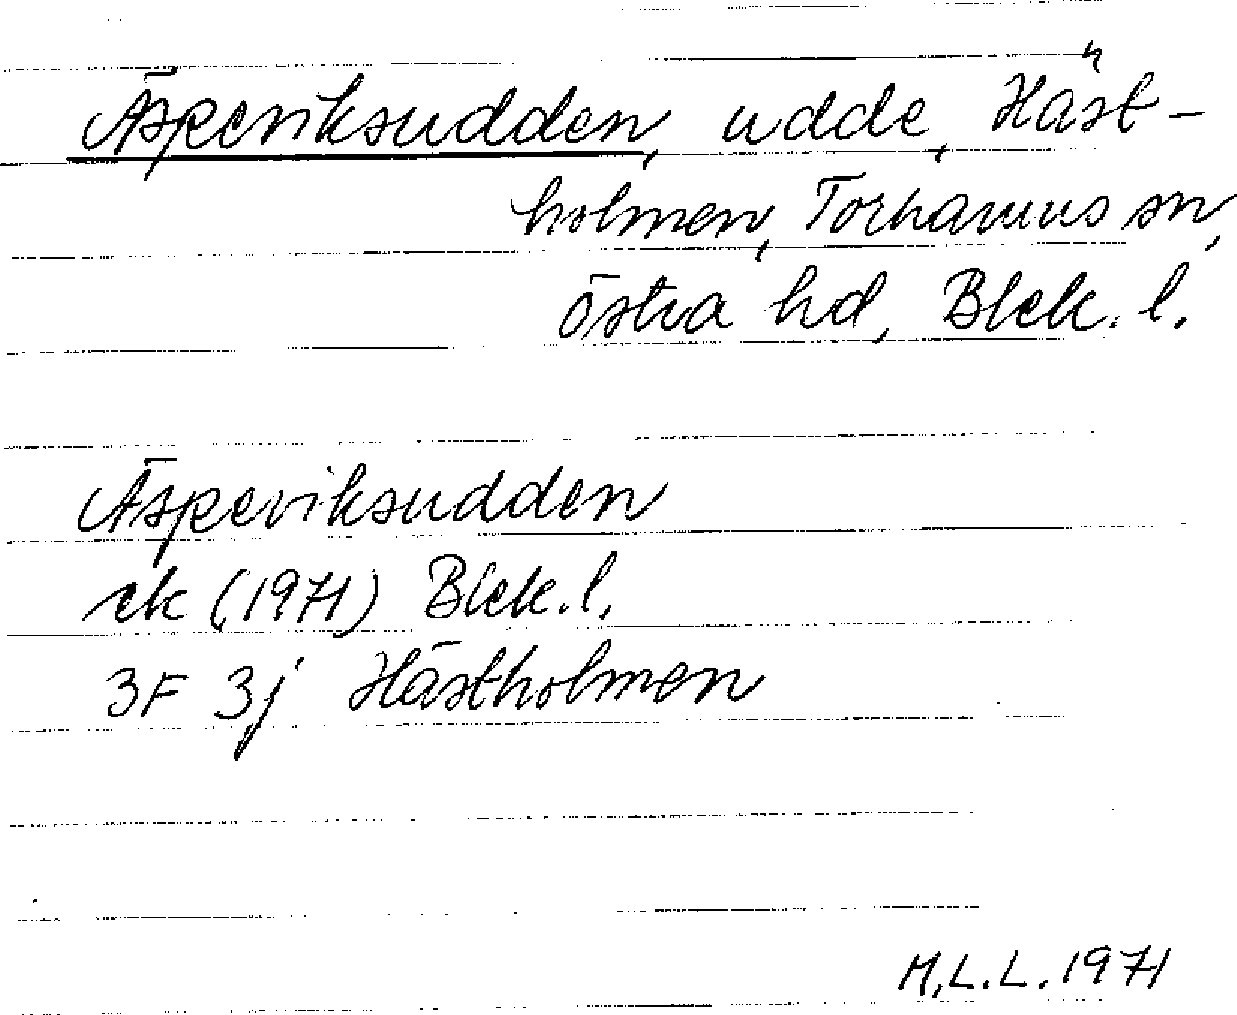 Äsperiksudden, udde, Häst-
holmen, Torhamns sn,
östra hd, Blek. l.
Äsperiksudden
ek (1971) Blek. l.
3F 3j Hästholmen
M.L.L. 1971